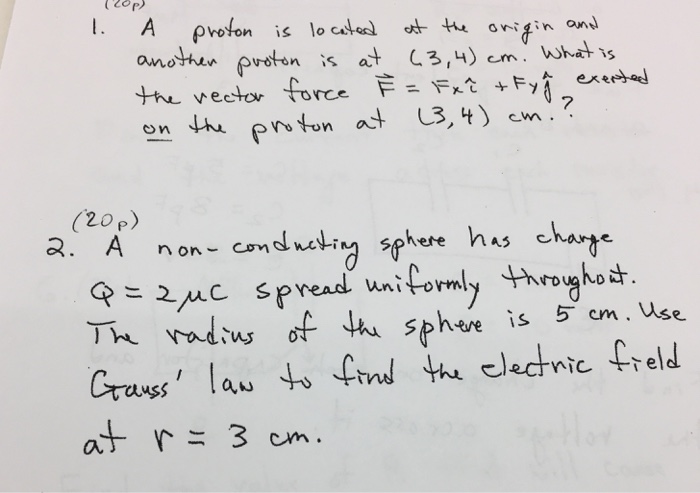 (20p)
1. A proton is located at the origin and
another proton is at (3,4) cm. What is
the vector force F⃗ = Fxî + Fyĵ exerted
on the proton at (3,4) cm.?
(20p)
2. A non-conducting sphere has charge
Q = 2 μC spread uniformly throughout.
The radius of the sphere is 5 cm. Use
Gauss' law to find the electric field
at r = 3 cm.